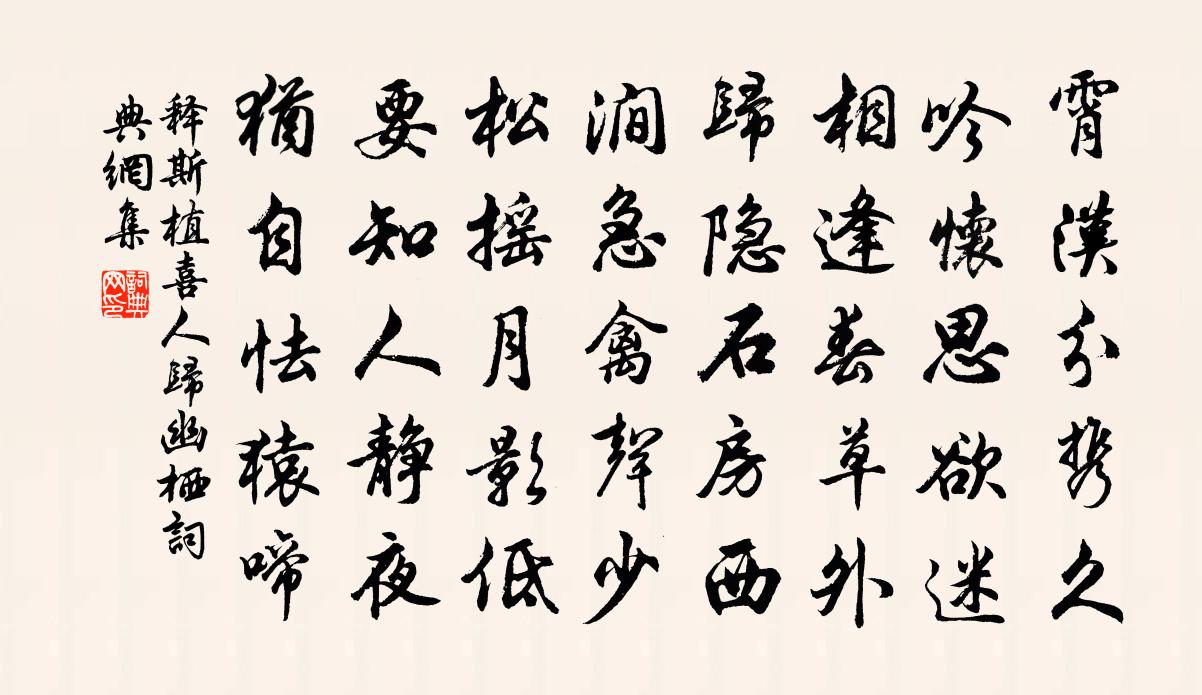 霄漢分携久
吟懷思欲迷
相逢春草外
歸隐石房西
澗急禽聲少
松摇月影低
要知人靜夜
猶自怯猿啼
释斯植喜人歸幽栖詞
典網集
詞典
网印